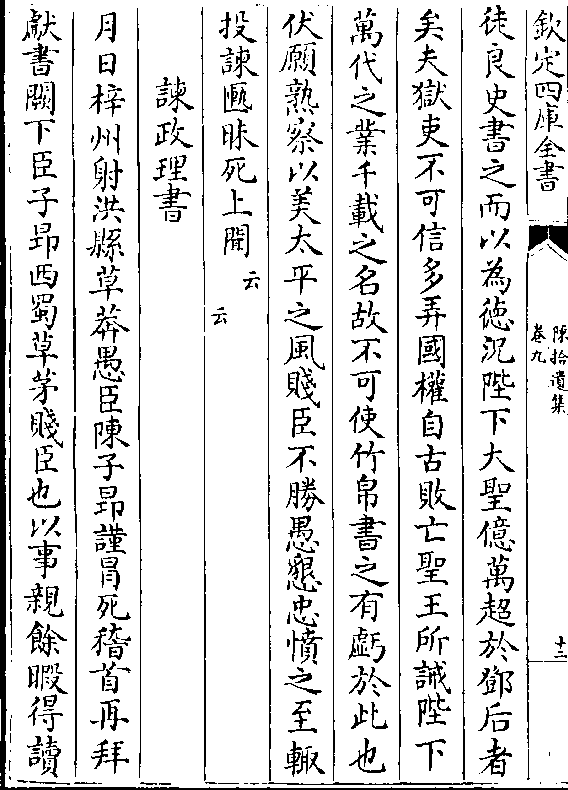 欽定四庫全書
陳拾遺集
卷九
十二
徒良史書之而以為徳況陛下大聖億萬超於鄧后者
矣夫獄吏不可信多弄國權自古敗亡聖王所誡陛下
萬代之業千載之名故不可使竹帛書之有虧於此也
伏願熟察以美太平之風賤臣不勝愚懇忠憤之至輙
投諫匭昧死上聞云云
諫政理書
月日梓州射洪縣草莽愚臣陳子昻謹冒死稽首再拜
獻書闕下臣子昻西蜀草茅賤臣也以事親餘暇得讀